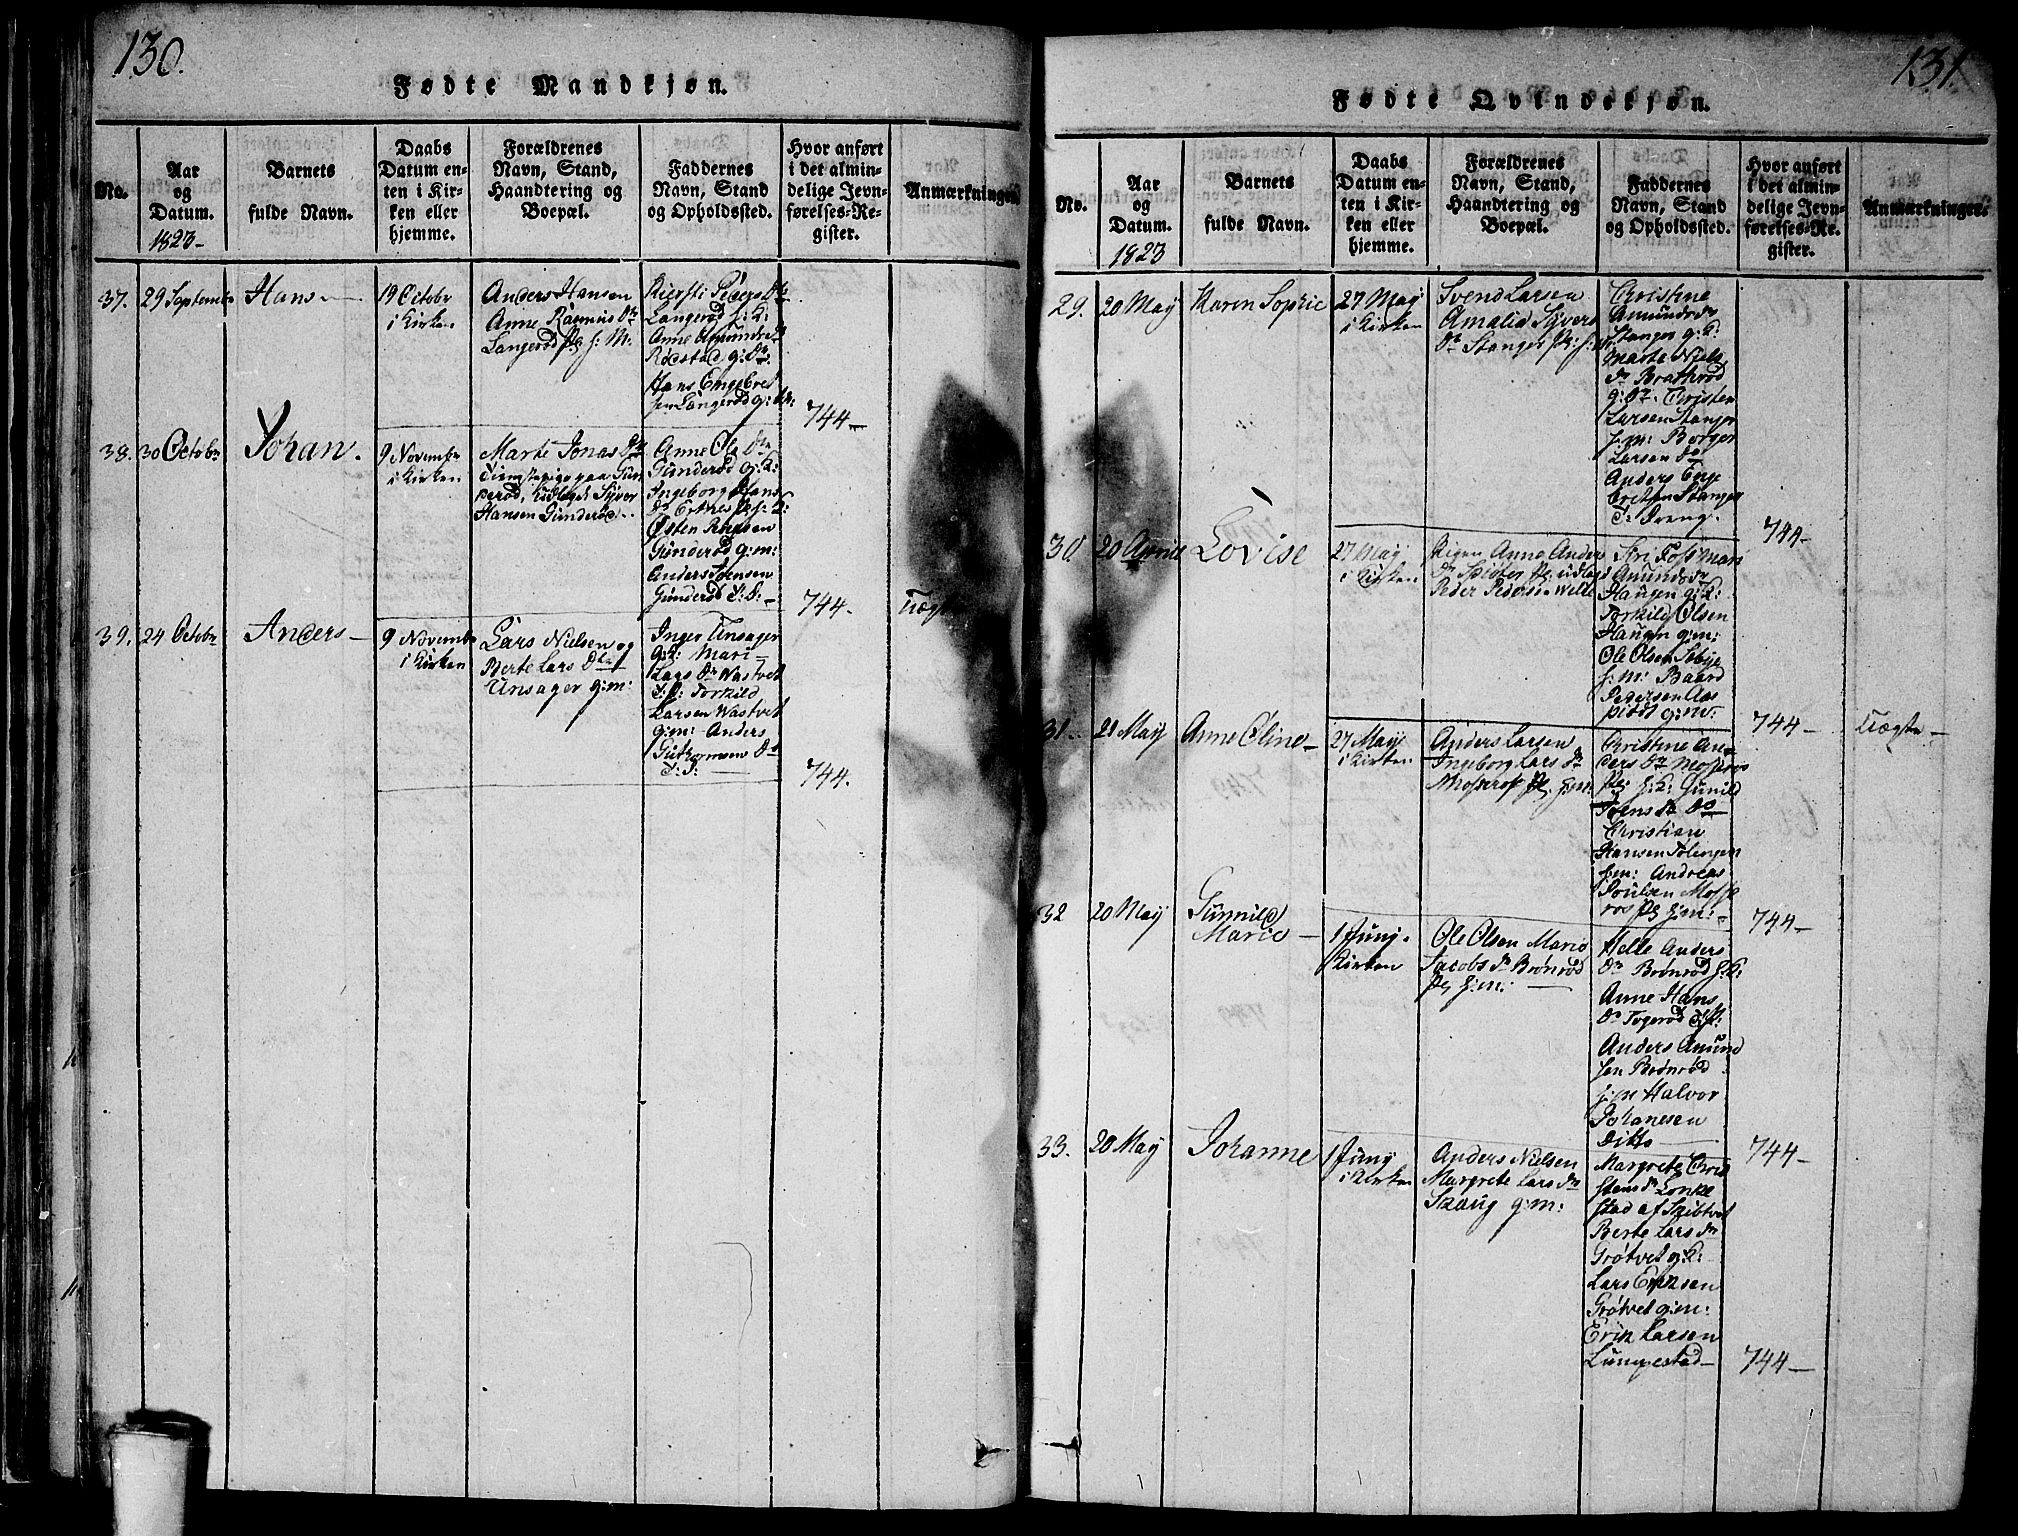 130.
Fødte Mandkjøn.
No.
Aar
og
Datum.
1823-
Barnets
fulde Navn.
Daabs
Datum en-
ten i Kir-
ken eller
hjemme.
Forældrenes
Navn, Stand,
Haandtering og
Boepæl.
Faddernes
Navn, Stand
og Opholdssted.
Hvor anført
i det almin-
delige Jevn-
førelses-Re-
gister.
Anmærkninger.
37.
29 Septembr
Hans
19 Octobr
i Kirken
Anders Hansen
Anne Rasmus Dtr
Langerød Pl. h: M:
Kiersti Peders Dtr
Langerød h: K:
Anne Amundsdr
Røestad g: Dr
Hans Engebret
sen Langerød g:
744-
38.
30 Octobr
Johan.
9 Novembr
i Kirken
Marte Jonas Dtr
Tienstepige paa Gun
derød, Udlagt Syver
Hansen Gunderød-
Anne Ols Dtr
Gunderød g: K:
Ingeborg Hans
Dr h: K:
Østen
Gunderød g: m:
Anders Joensen
Gunderød
744.
Uægte
39.
24 Octobr
Anders
9 Novembr
i Kirken
Lars Nielsen og
Berte Lars Dtr
Unsager g: m:
Inger Unsager
g: K: Mari
Lars Dr Wastvet
Torkild
Larsen Wastvet
g: m: Anders
Guttormsen
744.
131.
Fødte Qvindekjøn.
No.
Aar
og
Datum.
1823
Barnets
fulde Navn.
Daabs
Datum en-
ten i Kir-
ken eller
hjemme.
Forældrenes
Navn, Stand,
Haandtering og
Boepæl.
Faddernes
Navn, Stand
og Opholdssted.
Hvor anført
i det almin-
delige Jevn-
førelses-Re-
gister.
Anmærkninger.
29.
20 May
Karen Sophie
27 May
i Kirken
Svend Larsen
Amalia Syvers
Dr Stanger Pl: h: m:
Christine
Amunds Dr
Stanger g: K:
Marte Niels
Dr Brattrød
g: Christen
Larsen Stanger
h: m: Borger
Larsen
Anders Enge
Stanger
744-
30.
20
Lovise
27 May
i Kirken
Pigen Anne Anders
Dr Pl: udlagt
Peder Welle
Siri Foss Mari
Amunds Dr
Haugen g: K:
Torkild Olsen
Haugen g: m:
Ole Olsen
h: m: Baard
Pedersen
g: m:
744-
Uægte-
31.
21 May
Anne Oline-
27 May
i Kirken
Anders Larsen
Ingeborg Lars Dr
Mosseros Pl. h: m:
Christine An-
ders Dr Mosseros
Pl. h: K: Gunild
Jens Dr
Christian
Hansen
Andreas
Poulsen Mosse
ros Pl h: m:
744-
32
20 May
Gunnild
Marie
1 Junij
Kirken
Ole Olsen Marie
Jacobs Dr Brønrød
Pl h: m:
Helle Anders
Dr Brønrød h: K:
Anne Hans
Dr Togerød
Anders Amund
sen Brønrød
h: m Halvor
Johanesen
Ditto
744-
33.
20 May
Johanne
1 Junij
i Kirken
Anders Nielsen
Margrete Lars Dr
Skaug g: m:
Margrete Chri
stens Dr Lonke
stad af Skibtvet
Berte Lars Dr
Grøtvet g: K:
Lars Eriksen
Grøtvet g: m:
Erik Larsen
Lundestad
744-